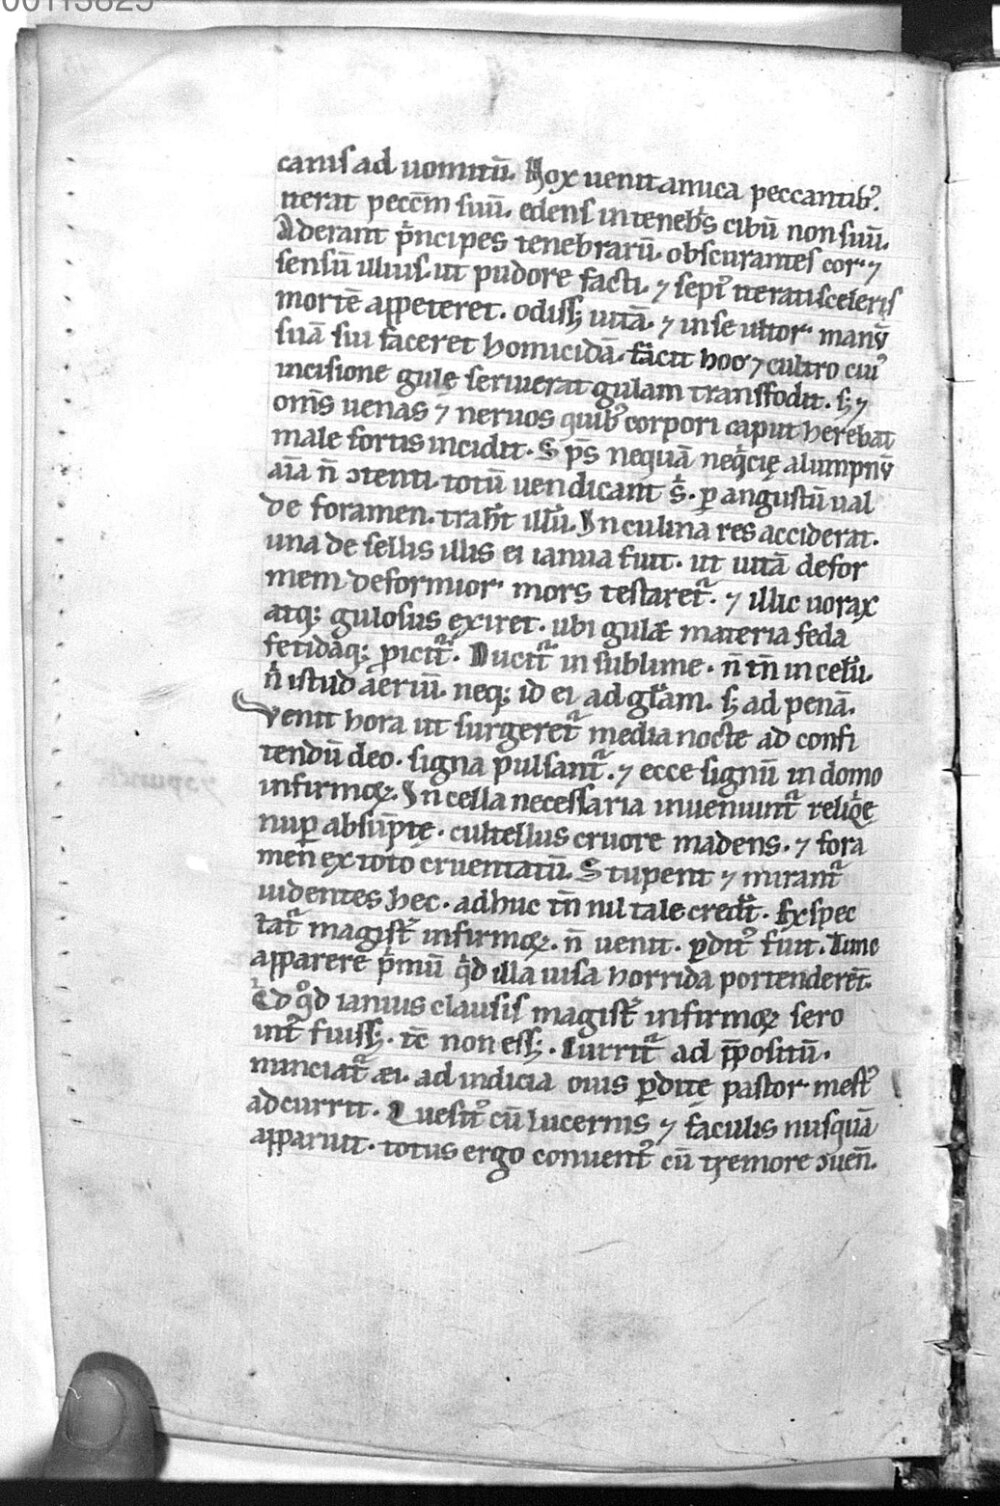 00113825
canis ad uomitū. Mox uenit amica peccantibꝰ.
iterat peccm̄ suū. edens in tenebͥs cibū non suū.
Aderant pͥncipes tenebrarū. obscurantes cor. ⁊
sensū illius. ut pudore facti. ⁊ sepiꝰ iterati sceleris
mortē appeteret. odissꝫ uitā. ⁊ in se ultor manū
suā sui faceret homicidā. facit hoc ⁊ cultro cuiꝰ
incisione gulę seruierat gulam transfodit. sꝫ ⁊
om̄s uenas ⁊ neruos quibꝰ corpori caput herebat
male fortis incidit. S pͨs nequā neqͥcię alumpnū
aīa n̄ ɔtenti. totū uendicant sͥ. ꝑ angustū ual
de foramen. trah̄t illū. In culina res acciderat.
una de sellis illis ei ianua fuit. ut uitā defor
mem deformior mors testaretᷣ. ⁊ illic uorax
atqꝫ gulosus exiret. ubi gulæ materia feda
fetidaqꝫ ꝓicitᷣ. Ducitᷣ in sublime. n̄ tn̄ in celū.
n̄ istud aeriū. neqꝫ id ei ad głam. sꝫ ad penā.
Venit hora ut surgeretᷣ media nocte ad confi
tendū deo. signa pulsantᷣ. ⁊ ecce signū in domo
infirmoꝝ. In cella necessaria inueniuntᷣ reliqͥę
nuꝑ absūptę. cultellus cruore madens. ⁊ fora
men ex toto cruentatū. Stupent ⁊ mirantᷣ
uidentes hec. adhuc tn̄ nil tale credt̄. Exspec
tatᷣ magist̄ infirmoꝝ. n̄ uenit. ꝑditꝰ fuit. Tunc
apparere pͥmū qͥd illa uisa horrida portenderēt.
Ed qͦd ianuis clausis magist̄ infirmoꝝ sero
int̄ fuissꝫ. tc̄ non essꝫ. Curritᷣ ad p̄positū.
nunciatᷣ æi. ad indicia ouis ꝑdite pastor mestꝰ
adcurrit. Quesitꝰ cū lucernis ⁊ faculis nusquā
apparuit. totus ergo conuentꝰ cū tremore ɔuen̄.